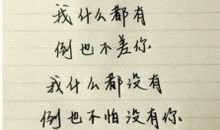 我什么都有
倒也不差你
我什么都没有
倒也不怕没有你